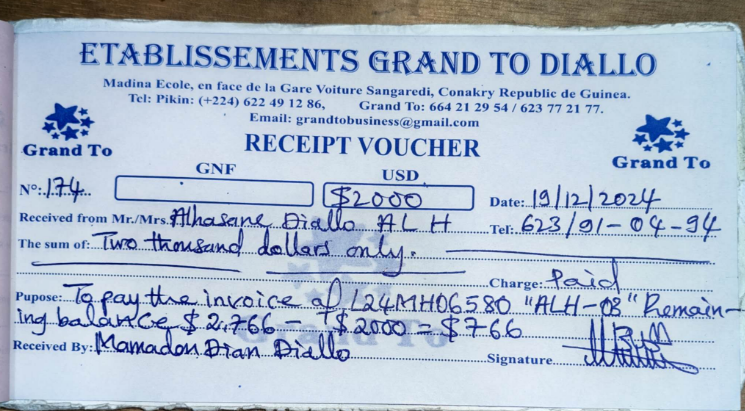 ETABLISSEMENTS GRAND TO DIALLO
Madina Ecole, en face de la Gare Voiture Sangaredi, Conakry Republic de Guinea.
Tel: Pikin: (+224) 622 49 12 86, Grand To: 664 21 29 54 / 623 77 21 77.
Email: grandtobusiness@gmail.com
Grand To
RECEIPT VOUCHER
Grand To
GNF
USD
N°: 174
$2000
Date: 19/12/2024
Received from Mr./Mrs. Alhasane Diallo ALH Tel: 623/91-04-94
The sum of: Two thousand dollars only.
Charge: Paid
Pupose: To pay the invoice of L24MH06580 "ALH-08" Remain-
ing balance $2,766 - $2000 = $766
Grand To
Received By: Mamadou Dian Diallo
Signature